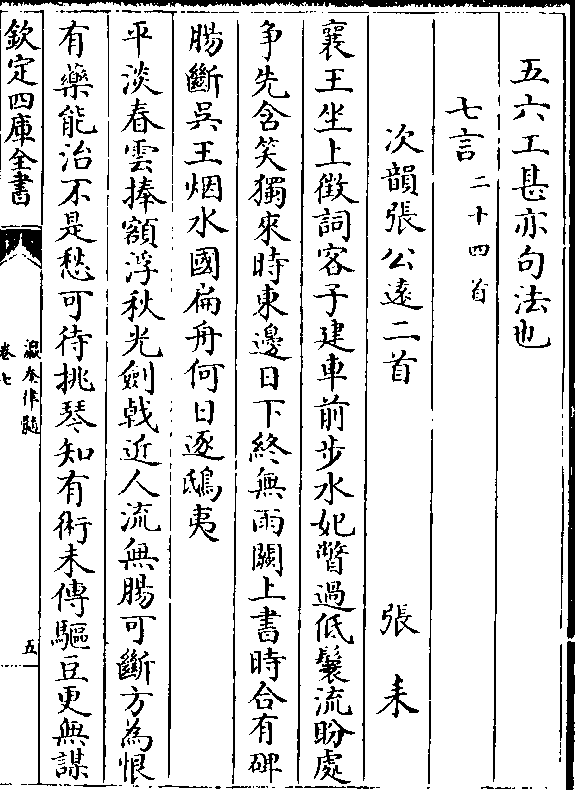 五六工甚亦句法也
七言二十四首
次韻張公遠二首 張耒
襄王坐上徵詞客子建車前步水妃瞥過低鬟流盼處
争先含笑獨來時東邊日下終無雨闕上書時合有碑
腸斷吳王烟水國扁舟何日逐鴟夷
平淡春雲捧額浮秋光劍戟近人流無腸可斷方為恨
有藥能治不是愁可待挑琴知有術未傳驅豆更無謀
欽定四庫全書
瀛奎律髓
卷七
五